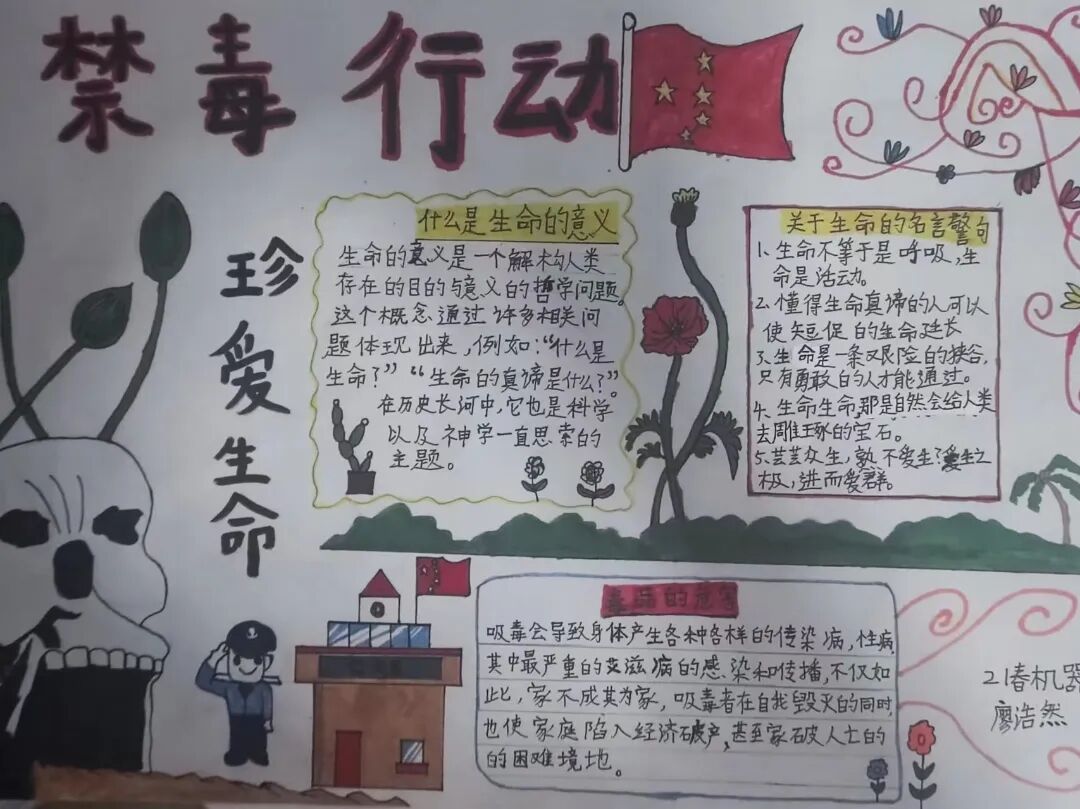 禁毒行动
珍爱生命
什么是生命的意义
生命的意义是一个解构人类
存在的目的与意义的哲学问题。
这个概念通过许多相关问
题体现出来,例如:“什么是
生命?”“生命的真谛是什么?”。
在历史长河中,它也是科学
以及神学一直思索的
主题。
关于生命的名言警句
1、生命不等于是呼吸,生
命是活动。
2、懂得生命真谛的人可以
使短促的生命延长
3、生命是一条艰险的峡谷,
只有勇敢的人才能通过。
4、生命生命,那是自然会给人类
去雕琢的宝石。
5、芸芸众生,孰不爱生?爱生之
极,进而爱群。
毒品的危害
吸毒会导致身体产生各种各样的传染病,性病
其中最严重的艾滋病的感染和传播,不仅如
此,家不成其为家,吸毒者在自我毁灭的同时,
也使家庭陷入经济破产,甚至家破人亡的
的困难境地。
21春机器
廖浩然